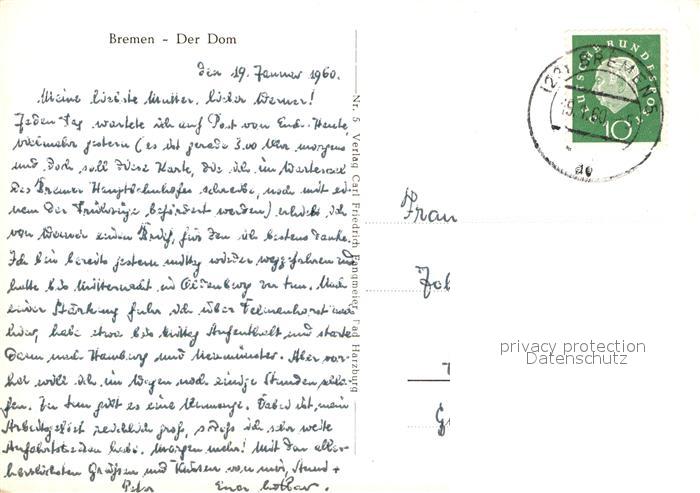 Bremen – Der Dom
den 19. Januar 1960.
Meine liebste Mutter, lieber Werner!
Jeden Tag wartete ich auf Post von Euch. Heute
vielmehr gestern (es ist gerade 3.00 Uhr morgens
und doch soll diese Karte, die ich im Wartesaal
des Bremer Hauptbahnhofes schreibe, noch mit ei-
nem der Frühzüge befördert werden) erhielt ich
von Werner einen Brief, für den ich bestens danke.
Ich bin bereits gestern mittag wieder weggefahren und
hatte bis Mitternacht in Oldenburg zu tun. Nach
einer Stärkung fuhr ich über Delmenhorst nach
hier, habe etwa bis Mittag Aufenthalt und starte
dann nach Hamburg und Neumünster. Aber vor-
her will ich im Wagen noch einige Stunden schla-
fen. Zu tun gibt es eine Unmenge. Dabei ist mein
Arbeitsgebiet reichlich groß, sodass ich sehr weite
Anfahrtstrecken habe. Morgen mehr! Mit den aller-
herzlichsten Grüßen und Küssen von mir,
Euer
Nr. 5 Verlag Carl Friedrich Fangmeier, Bad Harzburg
DEUTSCHE BUNDESPOST
10
BREMEN 5
19.1.60
ao
Frau
privacy protection
Datenschutz